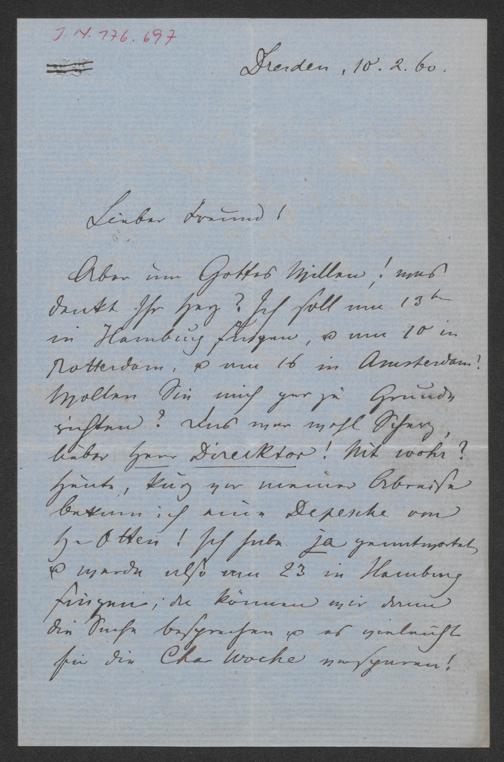 J. N. 176.697
Dresden, 10. 2. 60.
Lieber Freund!
Aber um Gottes Willen! was
denkt Ihr Herz? Ich soll am 13ten
in Hamburg singen, & am 15 in
Rotterdam, & am 16 in Amsterdam!
Wollen Sie mich gar zu Grunde
richten? Das war wohl Scherz,
lieber Herr Direcktor! Nit wohr?
Heute, kurz vor meiner Abreise
bekam ich eine Depesche von
H. Otten! Ich habe ja geantwortet
& werde also am 23 in Hamburg
singen; da können wir dann
die Sache besprechen & es vieleicht
für die Char Woche versparen!